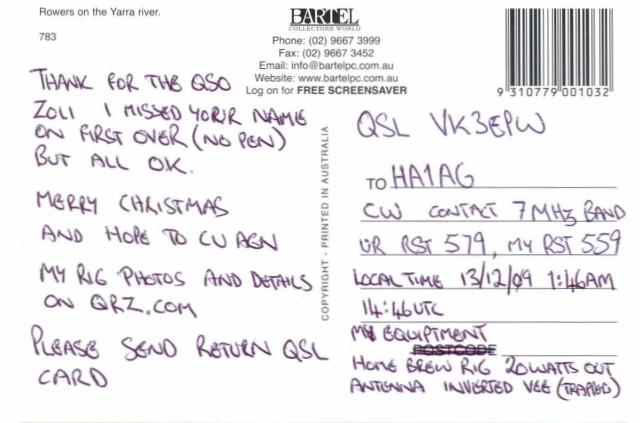 Rowers on the Yarra river.
783
BARTEL
COLLECTORS WORLD
Phone: (02) 9667 3999
Fax: (02) 9667 3452
Email: info@bartelpc.com.au
Website: www.bartelpc.com.au
Log on for FREE SCREENSAVER
9 310779 001032
THANK FOR THE QSO
ZOLI I MISSED YOR'R NAME
ON FIRST OVER (NO PEN)
BUT ALL OK.
MERRY CHRISTMAS
AND HOPE TO CU AGN
MY RIG PHOTOS AND DETAILS
ON QRZ.COM
PLEASE SEND RETURN QSL
CARD
COPYRIGHT - PRINTED IN AUSTRALIA
QSL VK3EPW
TO HA1AG
CW CONTACT 7MHz BAND
UR RST 579, MY RST 559
LOCAL TIME 13/12/09 1:46AM
14:46 UTC
MY EQUIPTMENT
POSTCODE
HOME BREW RIG 20WATTS OUT
ANTENNA INVERTED VEE (TRAPPED)